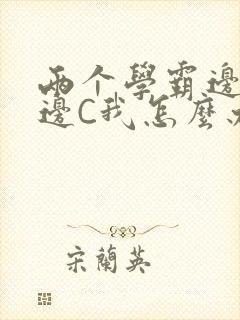 两个學霸邊
邊C我怎麼
宋蘭英